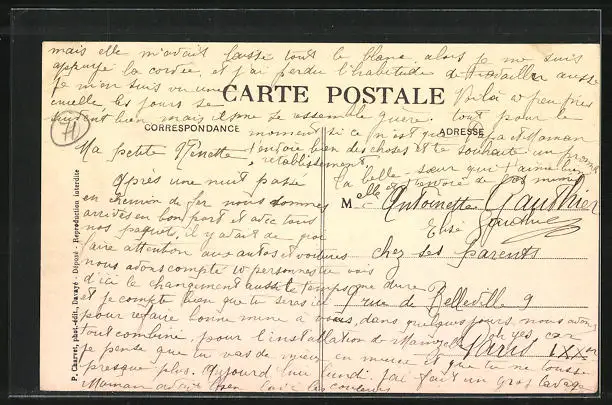 mais elle m'avait laissé tout le blanc, alors je me suis
appuyé la corvée, et j'ai perdu l'habitude de travailler aussi
je m'en suis vu une
CARTE POSTALE
cruelle, les jours se
Voilà à peu près
suivent bien mais ils ne se ressemble guère. tout pour le
CORRESPONDANCE
ADRESSE
moment si ce n'est que Papa et Maman
Ma petite Nénette
t'envoie bien des choses et te souhaite un prompt
rétablissement,
ta belle-sœur qui t'aime bien
Après une nuit passé
elle t'envoie de gros mimis
en chemin de fer nous sommes
M elle Antoinette Gauthier
arrivés en bon port et avec tous
Elise
nos paquets, il y avait de quoi
faire attention aux autos et voitures
chez ses parents
nous avons compté 10 personnes tu vois
d'ici le changement aussi le temps que dure
et je compte bien que tu seras ici
7 rue de Belleville 9
pour refaire bonne mine à vous, dans quelques jours nous avons
tout combiné, pour l'installation de
Paris XIX em
je pense que tu vas de mieux en mieux et que tu ne tousse
presque plus. Aujourd'hui lundi. J'ai fait un gros lavage
Maman avait bien lavé les couleurs
P. Charvet, phot.-édit., Davayé - Déposé - Reproduction interdite